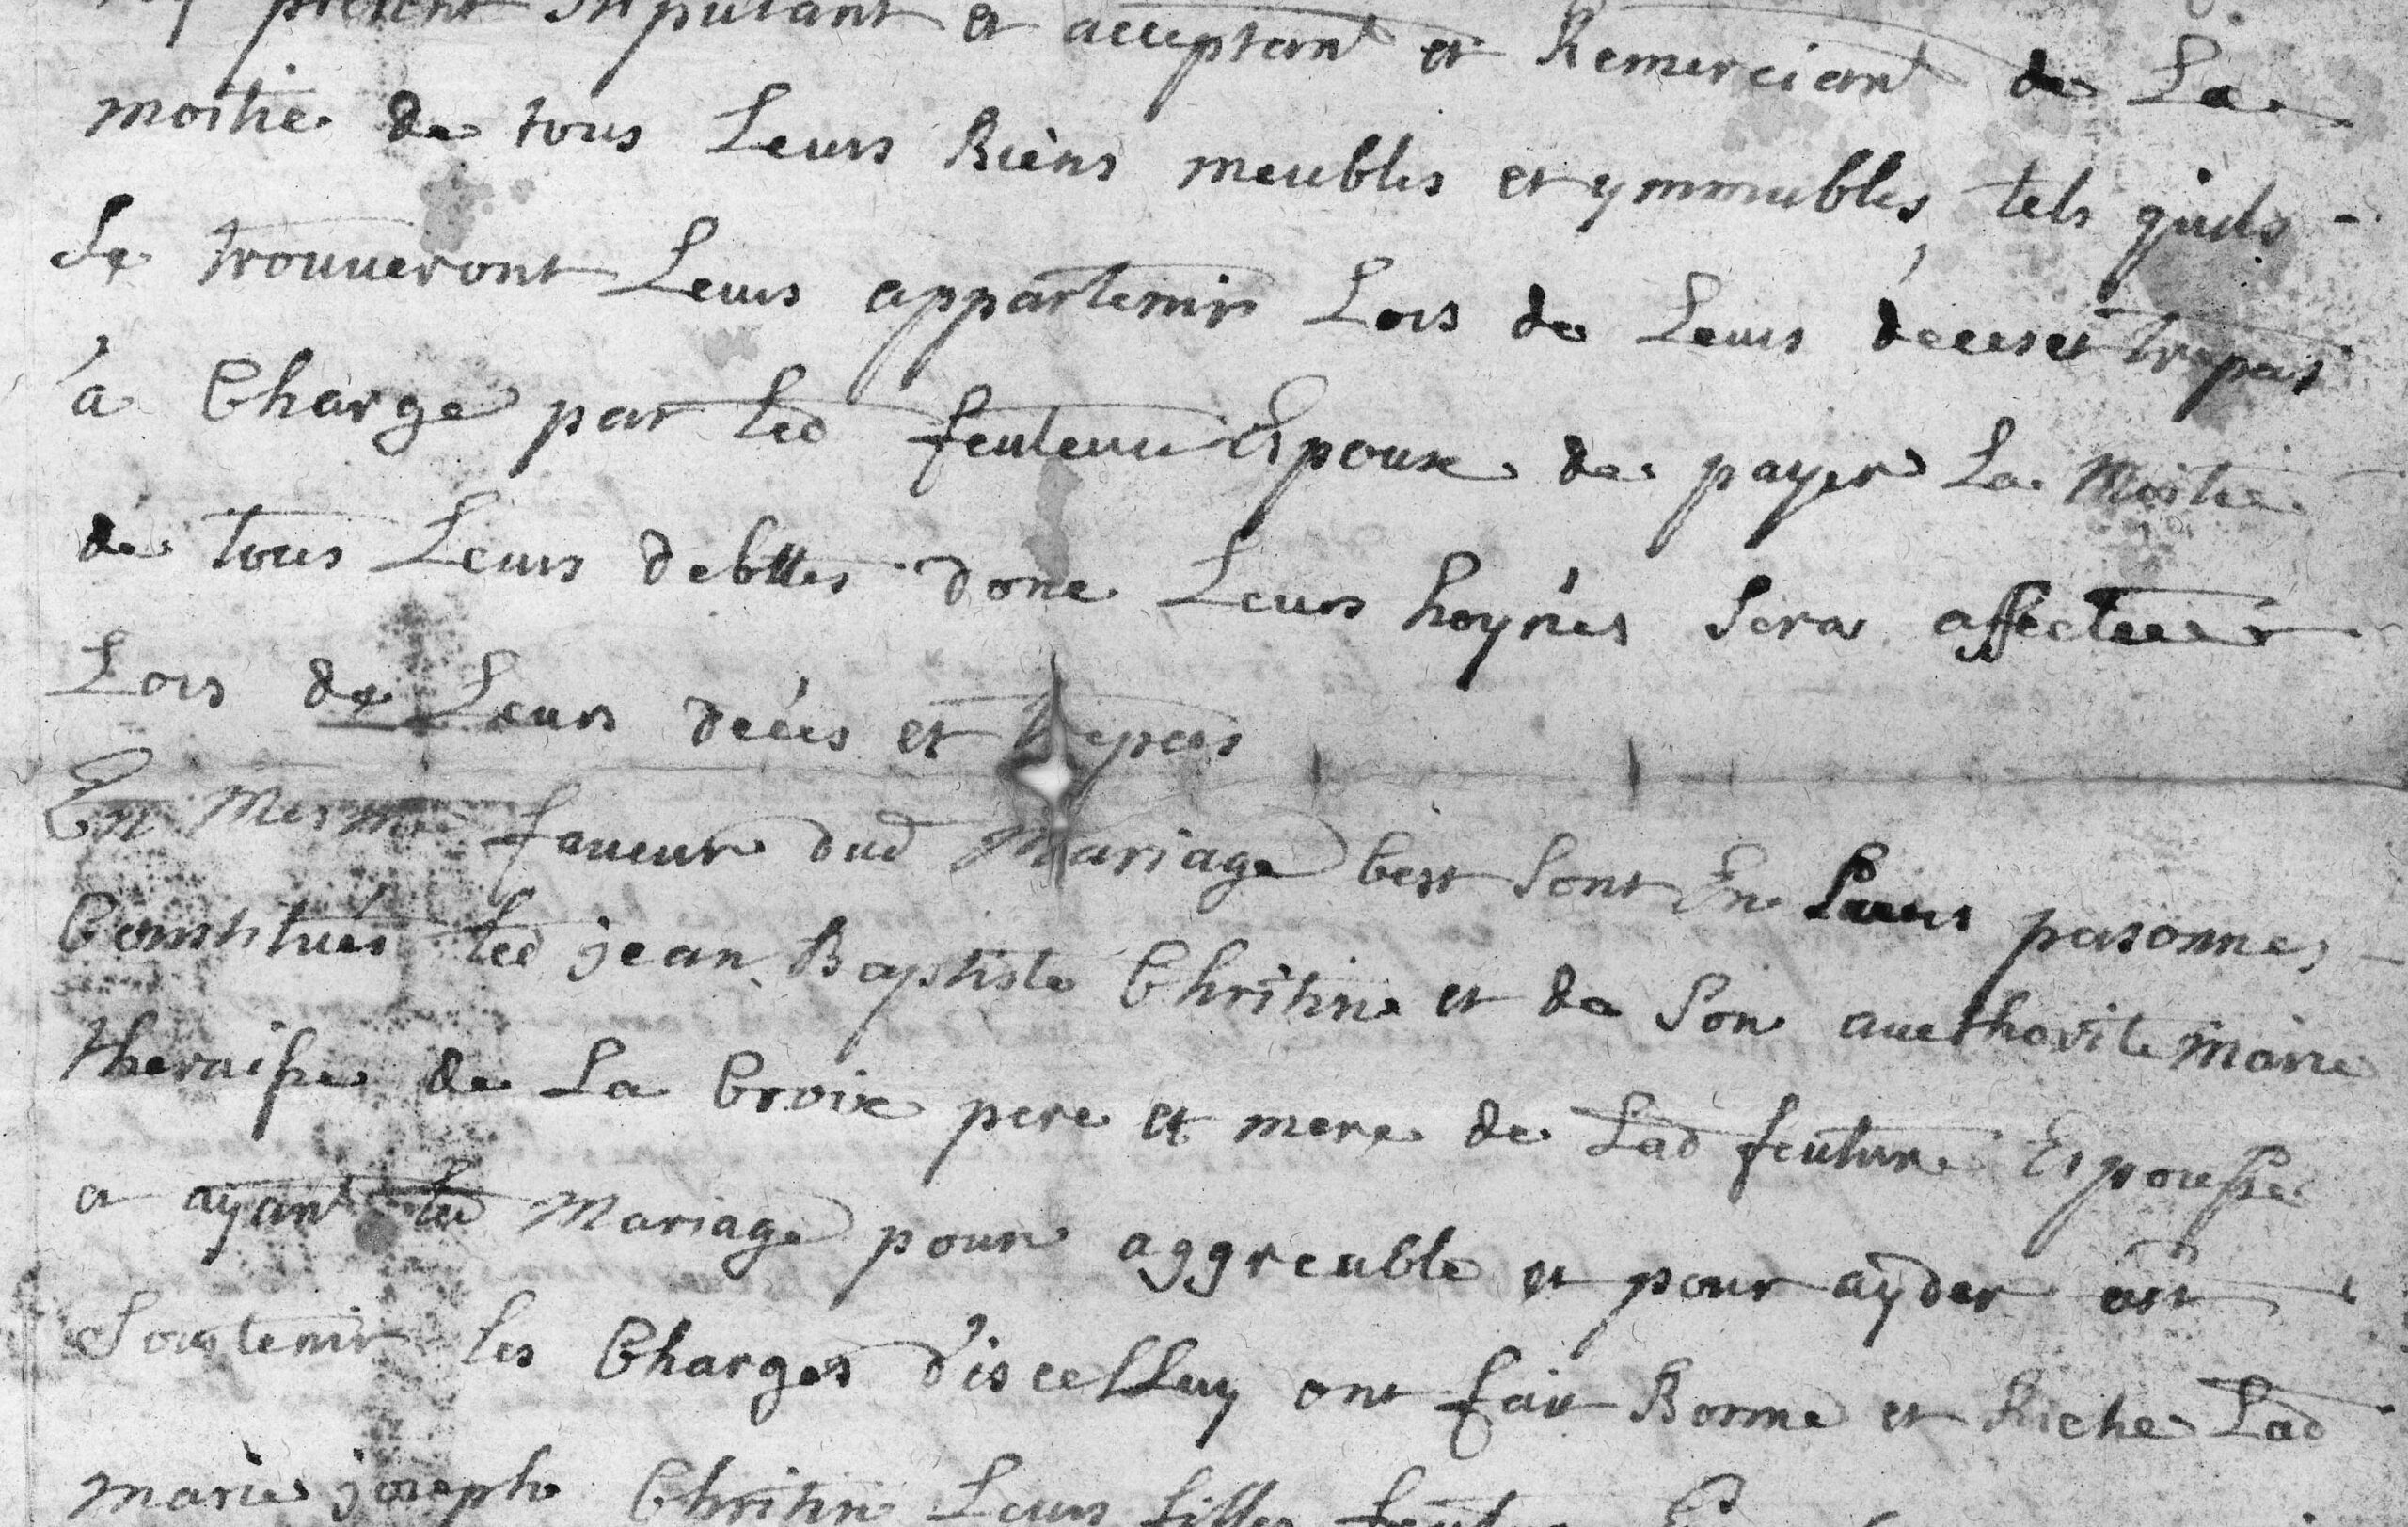 present stipulant et acceptant et Remerciant de La
moitie de tous Leurs Biens meubles et ymmubles tels quils -
Se trouueront Leurs appartenir Lors de Leurs deces et trepas
a Charge par led feuteur Espoux de payer La Moitie
de tous Leurs debttes donc Leurs hoynés Sera affecteer
Lors de Leurs décés et trepas
En Mesme faueur dud Mariage Cest Sont En Leurs personnes -
Constitués led jean Baptiste Chritine et de Son aucthorite marie
theraisse de La Croix pere et mere de Lad feuture Espousse
a ayant led Mariage pour aggreable et pour ayder
Soustenir les Charges d'iscelluy ont fait Bonne et Riche Lad
marie joseph Chritine Leurs filles